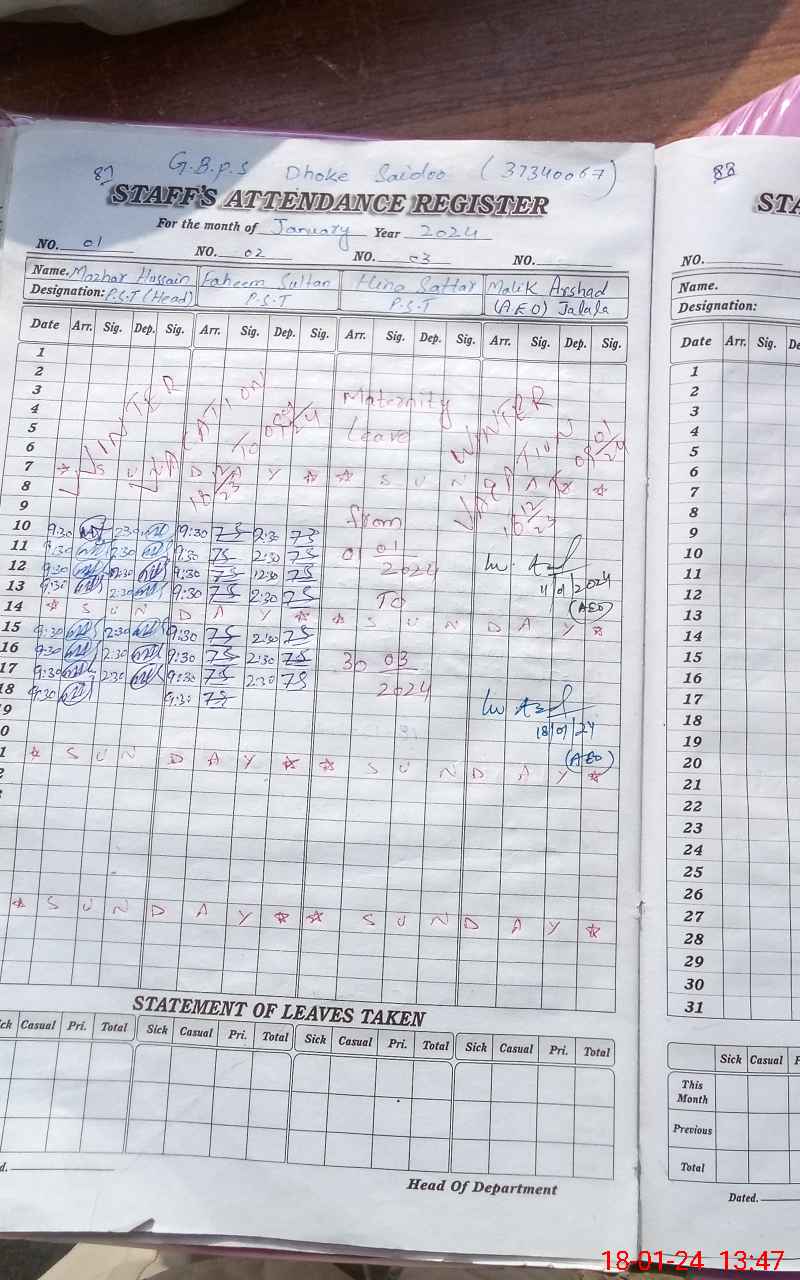 87 G.B.P.S Dhoke Saidoo (37340067)
STAFF'S ATTENDANCE REGISTER
For the month of January Year 2024
NO. 01 NO. 02 NO. 03 NO.
Name. Mazhar Hussain Faheem Sultan Hina Sattar Malik Arshad
Designation: P.S.T (Head) P.S.T P.S.T (A.E.O) Jalala
Date Arr. Sig. Dep. Sig. Arr. Sig. Dep. Sig. Arr. Sig. Dep. Sig. Arr. Sig. Dep. Sig.
1
2
3 WINTER Maternity WINTER
4 VACATION
5 TO 09/01/24 Leave VACATION 09/01/24
6
7 * S U N D A Y * * S U N D A Y *
8 18/12/23 18/12/23
9 from
10 9:30 2:30 9:30 2:30
11 9:30 2:30 9:30 2:30 01 01
12 9:30 12:30 9:30 12:30 2024
13 9:30 2:30 9:30 2:30 TO 11/01/2024
(AEO)
14 * S U N D A Y * * S U N D A Y *
15 9:30 2:30 9:30 2:30
16 9:30 2:30 9:30 2:30 30 03
17 9:30 2:30 9:30 2:30 2024
18 9:30 9:30
9 18/01/24
0 (AEO)
1 * S U N D A Y * * S U N D A Y *
2
* S U N D A Y * * S U N D A Y *
STATEMENT OF LEAVES TAKEN
Sick Casual Pri. Total Sick Casual Pri. Total Sick Casual Pri. Total
Casual Pri. Total
Head Of Department
88
STA
NO.
Name.
Designation:
Date Arr. Sig.
1
2
3
4
5
6
7
8
9
10
11
12
13
14
15
16
17
18
19
20
21
22
23
24
25
26
27
28
29
30
31
Sick Casual
This
Month
Previous
Total
Dated.
18-01-24 13:47